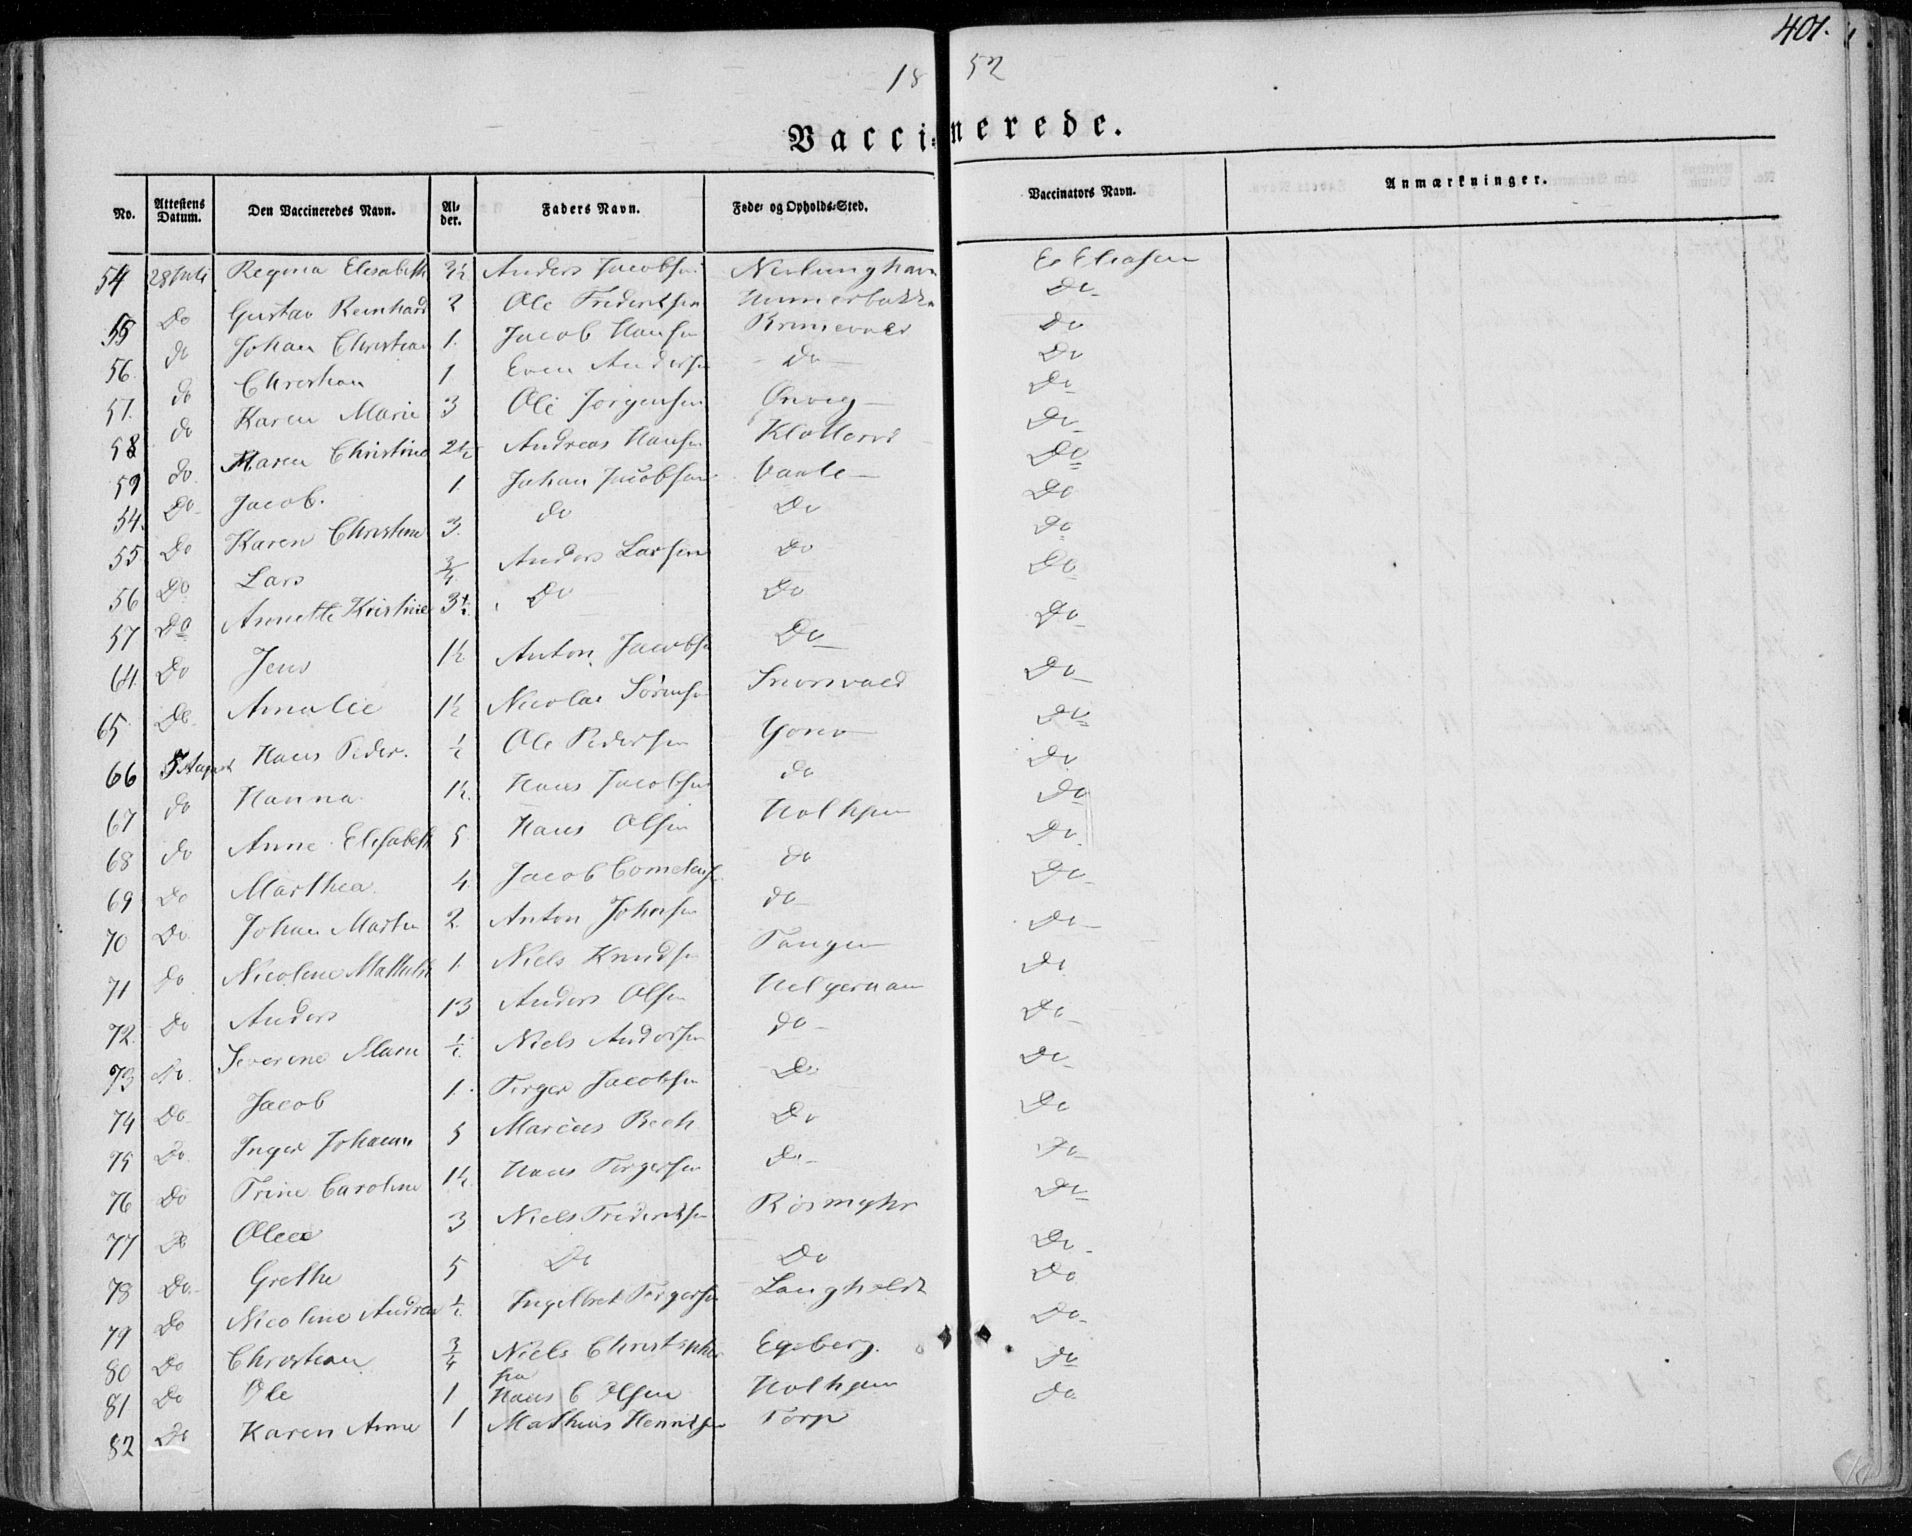 401.
18 52
Vaccinerede.
No. Attestens Datum. Den Vaccineredes Navn. Alder. Faders Navn. Føde- og Opholds-Sted. Vaccinators Navn. Anmærkninger.
54 28 Juli Regina Elisabeth Anders Jacobsen Nevlunghavn E Eliasen
55 Do Gustav Reinhard 2 Ole Frederiksen Hummerbakken Do
56 do Johan Christian 1 Jacob Hansen do
57. do Christian 1 Even Andersen do Do
58 do Karen Marie 3 Ole Jørgensen Onveg Do
59 do Maren Christine 2½ Andreas Hansen Do
54. Do Jacob. 1 Johan Jacobsen Vaale Do
55 Do Karen Christine 3. do Do Do
56 Do Lars 3/4 Anders Larsen Do do
57 Do Annette Kristine 3½ Do Do Do
64 Do Jens 1½ Anton Jacobsen Do Do
65 Do Amalie 1½ Nicolai Sørensen Do
66 5 August Hans Peder. ½ Ole Pedersen Do
67 do Hanna 1½ Hans Jacobsen do Do
68 do Anne Elisabeth 5 Hans Olsen Do
69 Do Marthea 4 Jacob do Do
70 Do Johan Martin 2. Anton Johnsen do Do
71 Do Nicoline Mathilde 1. Niels Knudsen Tangen Do
72. Do Anders 13 Anders Olsen Helgeroaen Do
73 Do Severine Marie ½ Niels Andersen do Do
74 Do Jacob 1. Torger Jacobsen Do Do
75 Do Inger Johanne 5 Marcus Bech Do Do
76 Do Trine Caroline 1½ Hans Torgersen do Do
77 Do Olea 3 Niels Frederiksen Rösmyhr Do
78 Do Grethe 5 Do Do Do
79 Do Nicoline Andrea ½ Ingelbret Torgersen Langholdt Do
80 Do Christian 3/4 Niels Christophersen Egeberg. Do
81 Do Ole 1 Hans C Olsen Do
82 Do Karen Anne 1 Mathias Henriksen Torp do